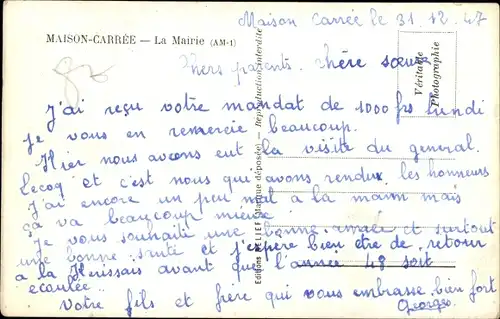 Maison Carrée le 31.12.47
MAISON-CARRÉE — La Mairie (AM-1)
Chers parents. chère soeur
Véritable
Photographie
J'ai reçu votre mandat de 1000 frs lundi
je vous en remercie beaucoup.
Hier nous avons eut la visite du general
Lecoq et c'est nous qui avons rendux les honneurs
J'ai encore un peu mal a la main mais
ça va beaucoup mieux
Je vous souhaite une bonne année et surtout
une bonne santé et j'espère bien etre de retour
a la avant que l'année 48 soit
ecoulée..
Votre fils et frère qui vous embrasse bien fort
Georges.
Editions (Marque déposée) — Reproduction interdite